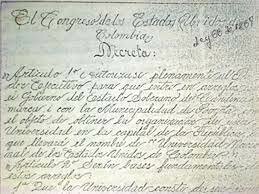 El Congreso de los Estados Unidos de
Colombia
Ley 66 de 1867
Decreta:
Artículo 1º Autorízase plenamente al Po
der Ejecutivo para que entre en arreglos
Gobierno del Estado Soberano de Cundina
marca i con la Municipalidad de
el objeto de obtener la organización
Universidad en la capital de la República
que llevará el nombre de "Universidad
de los Estados Unidos de Colombia".
Artículo 2º Serán bases fundamentales
arreglos:
1ª Que la Universidad conste de